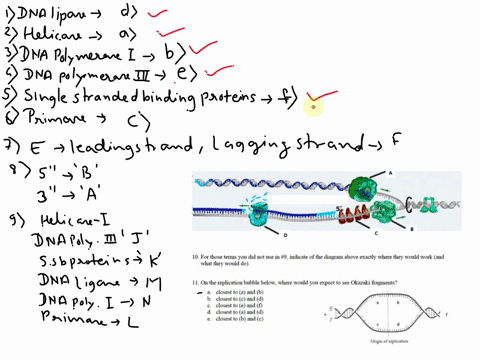 1) DNA lipase → d) ✓
2) Helicase → a) ✓
3) DNA Polymerase I → b) ✓
4) DNA polymerase III → e) ✓
5) Single stranded binding proteins → f) ✓
6) Primase → c)
7) E → leading strand, Lagging strand → F
8) 5" → 'B'
3" → 'A'
9) Helicase - I
DNA Poly. III 'J'
S.s b proteins → K'
DNA ligase → M
DNA poly. I → N
Primase → L
A
B
C
D
10. For those terms you did not use in #9, indicate of the diagram above exactly where they would work (and what they would do).
11. On the replication bubble below, where would you expect to see Okazaki fragments?
a. closest to (a) and (b)
b. closest to (c) and (d)
c. closest to (e) and (f)
d. closest to (a) and (d)
e. closest to (b) and (c)
a
b
c
d
e
f
5'
3'
Origin of replication